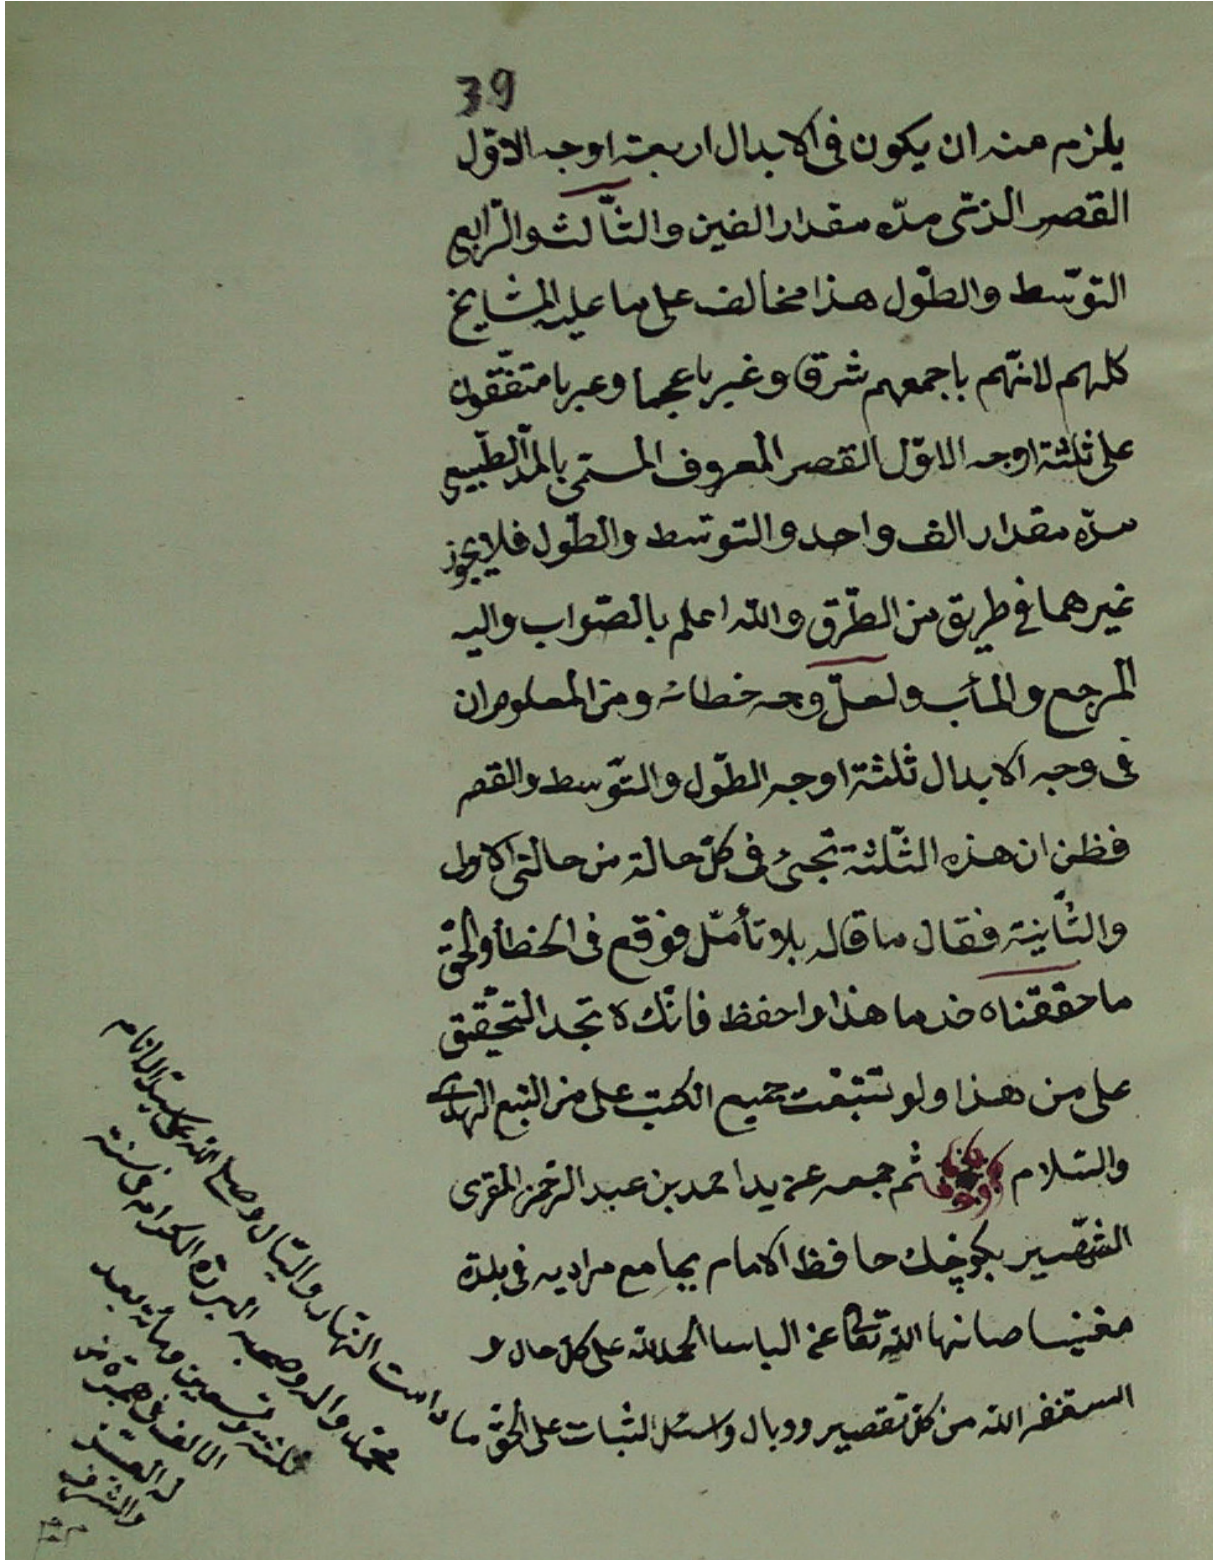 39
يلزم منه ان يكون فى الابدال اربعة اوجه الاوّل
القصر الذى مدّه مقدار الفين والثّالث والرّابع
التوسّط والطّول هذا مخالف على ما عليه المشايخ
كلهم لانّهم باجمعهم شرقا وغربا عجما وعربا متفّقون
على ثلثة اوجه الاوّل القصر المعروف المسمّى بالمدّ الطّبيعى
مدّه مقدار الف واحد والتوسّط والطّول فلا يجوز
غيرهما فى طريق من الطّرق والله اعلم بالصّواب واليه
المرجع والمأب ولعلّ وجه خطائه ومن المعلوم ان
فى وجه الابدال ثلثة اوجه الطّول والتّوسط والقصر
فظن ان هذه الثّلثة تجئ فى كلّ حالة من حالتى الاولى
والثّانية فقال ما قاله بلا تأمّل فوقع فى الخطأ والحقّ
ما حققناه خذ ما هذا واحفظ فانّك لا تجد التّحقيق
على من هذا ولو تتبّعت جميع الكتب على من اتبع الهدى
والسّلام ثم جمعه عن يد احمد بن عبد الرّحمن المقرى
الشّهير بكوچك حافظ الامام بجامع مراديه فى بلدة
مغنيسا صانها الله تعالى عن الباسا الحمد لله على كل حال و
استغفر الله من كل تقصير ووبال واسئل الثبات على الحقّ
ما دامت النّهار واللّيال وصلى الله على سيّد الانام
محمّد واله وصحبه البررة الكرام فى سنة
ثلثة وتسعين ومائة بعد
الالف من هجرة من
له العزّ
والشرف